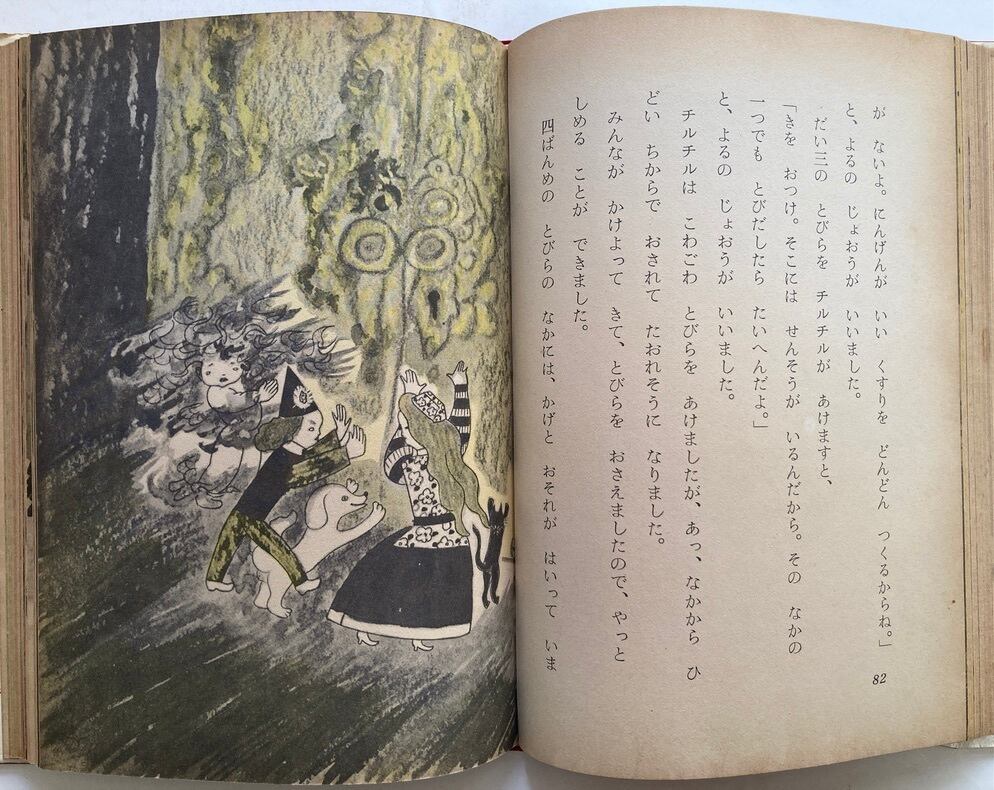 が　ないよ。にんげんが　いい　くすりを　どんどん　つくるからね。」
と、よるの　じょおうが　いいました。
だい三の　とびらを　チルチルが　あけますと、
「きを　おつけ。そこには　せんそうが　いるんだから。その　なかの
一つでも　とびだしたら　たいへんだよ。」
と、よるの　じょおうが　いいました。
チルチルは　こわごわ　とびらを　あけましたが、あっ、なかから　ひ
どい　ちからで　おされて　たおれそうに　なりました。
みんなが　かけよって　きて、とびらを　おさえましたので、やっと
しめる　ことが　できました。
四ばんめの　とびらの　なかには、かげと　おそれが　はいって　いま
82